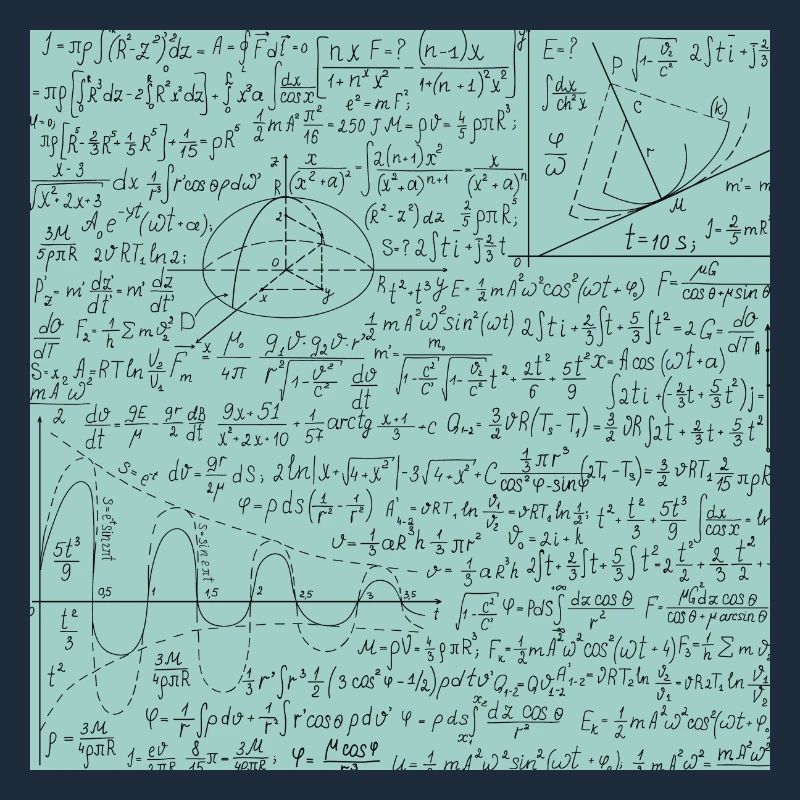 J = πρ∫(R²-z²)²dz = A = ∮F⃗dl⃗ = 0 [nx F=? (n-1)x
1+nˣx² 1+(n+1)²x²
= πρ[∫R³dz-2∫R²x²dz]+∫x³a ∫dx/cosx e²=mF²;
M=0; πρ[R⁵-2/3R⁵+1/5R⁵]+1/15=ρR⁵ 1/2mA²π²/16=250J M=ρV=4/5ρπR³;
x-3/√x²+2x+3 dx 1/r³∫r'cosθρdω' (x/(x²+a)²=∫2(n+1)x²/(x²+a)ⁿ⁺¹=x/(x²+a)ⁿ
A₀e^-γt(ωt+a); (R²-z²)dz 2/5ρπR⁵;
3M/5ρπR 2ϑRT₁ln2; S=? 2∫ti+j2/3t
z R 2 0 x y D x
y
E=? P √1-v²/c² 2∫ti+j2/3
∫dx/ch²x C (k)
φ/ω r m'=m
M t=10s; J=2/5mR²
0
P'z=m'dz'/dt'=m'dz/dt' Rt²+t³y E=1/2mA²ω²cos²(ωt+φ₀) F=μG/cosθ+μsinθ
dO/dT F₂=1/h Σmϑ² 1/2mA²ω²sin²(ωt) 2∫ti+2/3∫t+5/3∫t²=2G=dO/dT
S=x₂A=RTln V₂/V₁ Fm=μ₀/4π g₁v·g₂v·r²/r²√1-v²/c² dv/dt m'=m₀/√1-c²/c'√1-v²/c² t²+2t²/6+5t²/9 x=Acos(ωt+a)
mA²ω² ∫2ti+(-2/3t+5/3t²)j=
2 dv/dt=gE/μ-gr/2dB/dt 9x+51/x²+2x+10+1/57arctg x+1/3+C Q₁₋₂=3/2ϑR(T₃-T₁)=3/2ϑR∫2t+2/3t+5/3t²
S=e⁻ˣ dv=gr/2μ dS; 2ln|x+√4+x²|-3√4+x²+C 1/3πr³/cos²φ-sinφ(2T₁-T₃)=3/2ϑRT₁2/15πρR
φ=ρds(1/r²-1/r²) A'₄₋₂=ϑRT₁ln v₁/v₂=ϑRT₁ln1/2; t²+t²/3+5t³/9 ∫dx/cosx=ln
S=eᵗsin2πt
S=sin2πt
v=1/3aR³h 1/3πr² V₀=2i+k
v=1/3aR³h 2∫t+2/3∫t+5/3∫t²-2t²/2+2/3t²/2+
5t³/9
0,5 1 1,5 2 2,5 3 3,5 t
0
√1-c²/c² φ=Pds∫dzcosθ/r² F=μG²dzcosθ/cosθ+μarcsinθ
t²/3
M=ρV=4/3ρπR³; Fₖ=1/2mA²ω²cos²(ωt+4)F₃=1/hΣmϑ₂
t² 3M/4ρπR 1/3r'∫r³1/2(3cos²φ-1/2)ρdtv' Q₁₋₂=Qv'₁₋₂A'₁₋₂=ϑRT₂ln v₂/v₁=ϑR2T₁ln v₁/v₂
φ=1/r∫ρdv+1/r²∫r'cosθρdv' φ=ρds∫dzcosθ/r² Eₖ=1/2mA²ω²cos²(ωt+φ₀
ρ=3M/4ρπR
J=ev/2πR 8/15π=3M/4ρπR; φ=μcosφ/r³ U=1/2mA²ω²sin²(ωt+φ₀); 1/2mA²ω²=mA²ω²